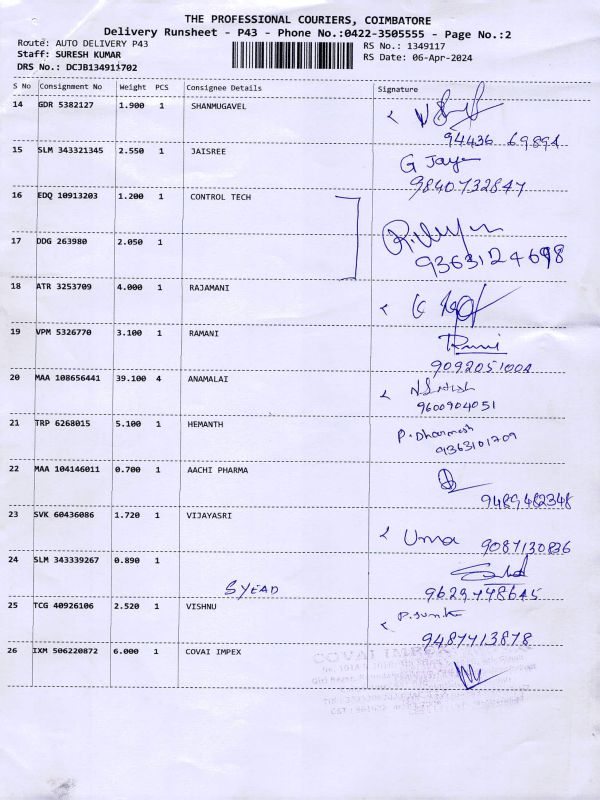 THE PROFESSIONAL COURIERS, COIMBATORE
Delivery Runsheet - P43 - Phone No.:0422-3505555 - Page No.:2
Route: AUTO DELIVERY P43
RS No.: 1349117
Staff: SURESH KUMAR
RS Date: 06-Apr-2024
DRS No.: DCJB134911702
S No Consignment No Weight PCS Consignee Details Signature
14 GDR 5382127 1.900 1 SHANMUGAVEL
94436 69894
15 SLM 343321345 2.550 1 JAISREE G Jaya
9840732847
16 EDQ 10913203 1.200 1 CONTROL TECH
17 DDG 263980 2.050 1
9363124698
18 ATR 3253709 4.000 1 RAJAMANI
19 VPM 5326770 3.100 1 RAMANI Rami
9092051004
20 MAA 108656441 39.100 4 ANAMALAI
9600904051
21 TRP 6268015 5.100 1 HEMANTH P. Dharmesh
9363101709
22 MAA 104146011 0.700 1 AACHI PHARMA
9489482348
23 SVK 60436086 1.720 1 VIJAYASRI
Uma 9087130836
24 SLM 343339267 0.890 1
SYEAD 9629748645
25 TCG 40926106 2.520 1 VISHNU
9487713878
26 IXM 506220872 6.000 1 COVAI IMPEX
COVAI IMPEX